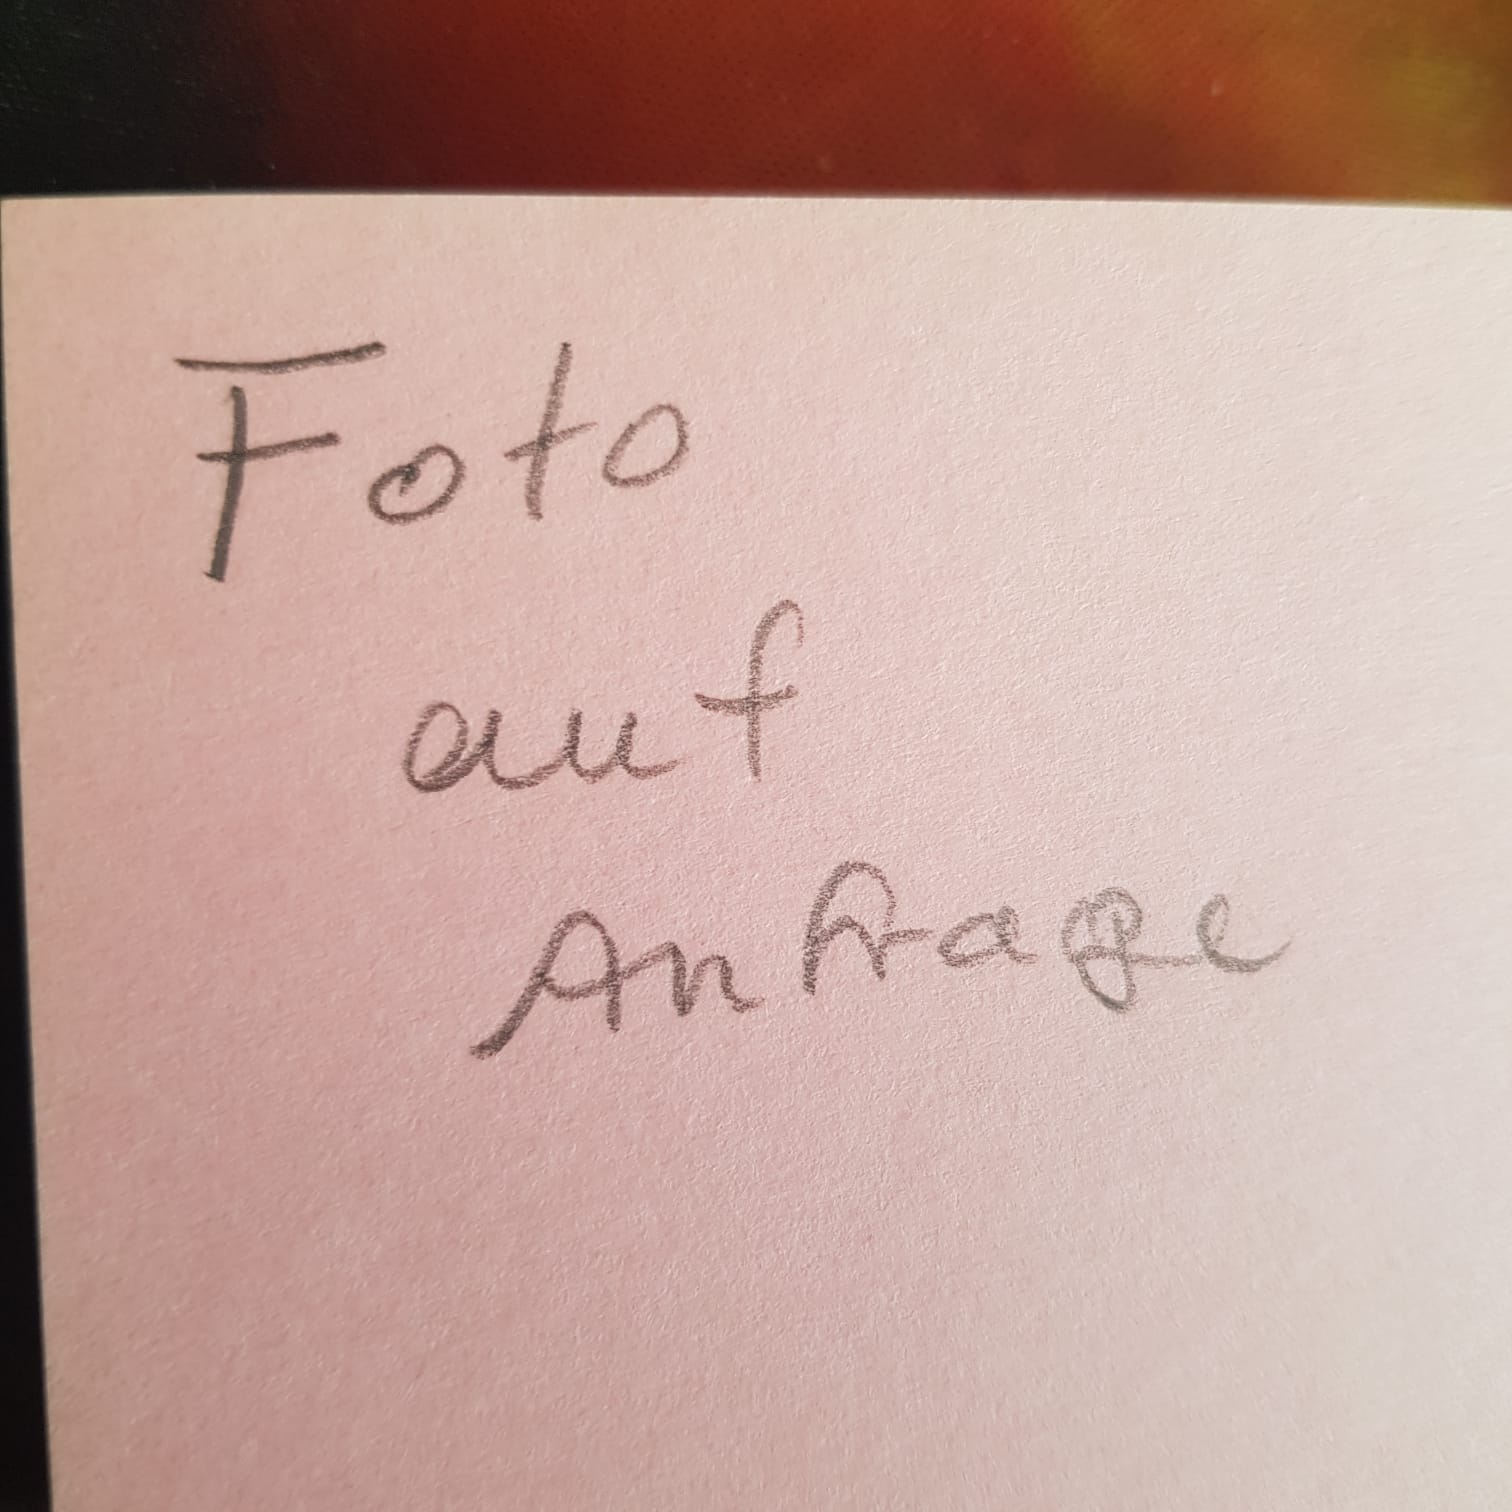 Foto
auf
Anfrage